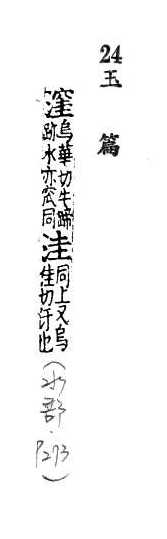 24玉篇
窪烏華切牛蹄
跡水亦窊同
洼同上又烏
佳切汙也
(水部.
P273)